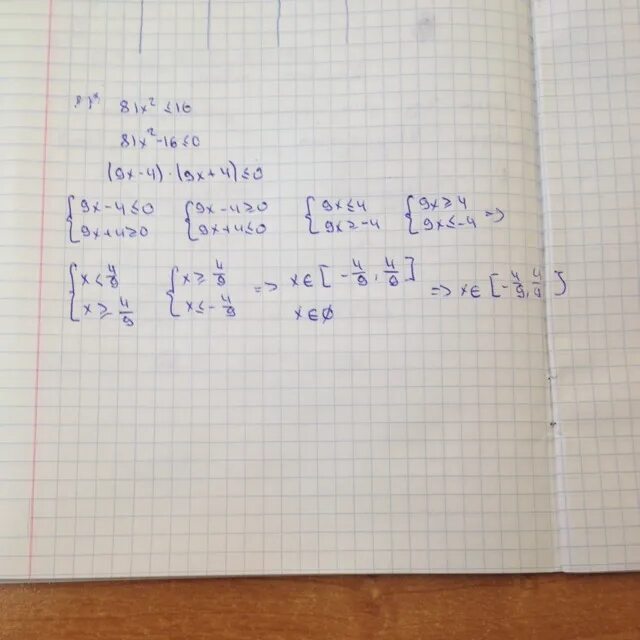 81x² ≤ 16
81x² - 16 ≤ 0
(9x - 4) · (9x + 4) ≤ 0
{ 9x - 4 ≤ 0 { 9x - 4 ≥ 0 { 9x ≤ 4 { 9x ≥ 4
{ 9x + 4 ≥ 0 { 9x + 4 ≤ 0 { 9x ≥ -4 { 9x ≤ -4 =>
{ x ≤ 4/9 { x ≥ 4/9 => x ∈ [ -4/9 , 4/9 ] => x ∈ [ -4/9 , 4/9 ]
{ x ≥ -4/9 { x ≤ -4/9 x ∈ ∅